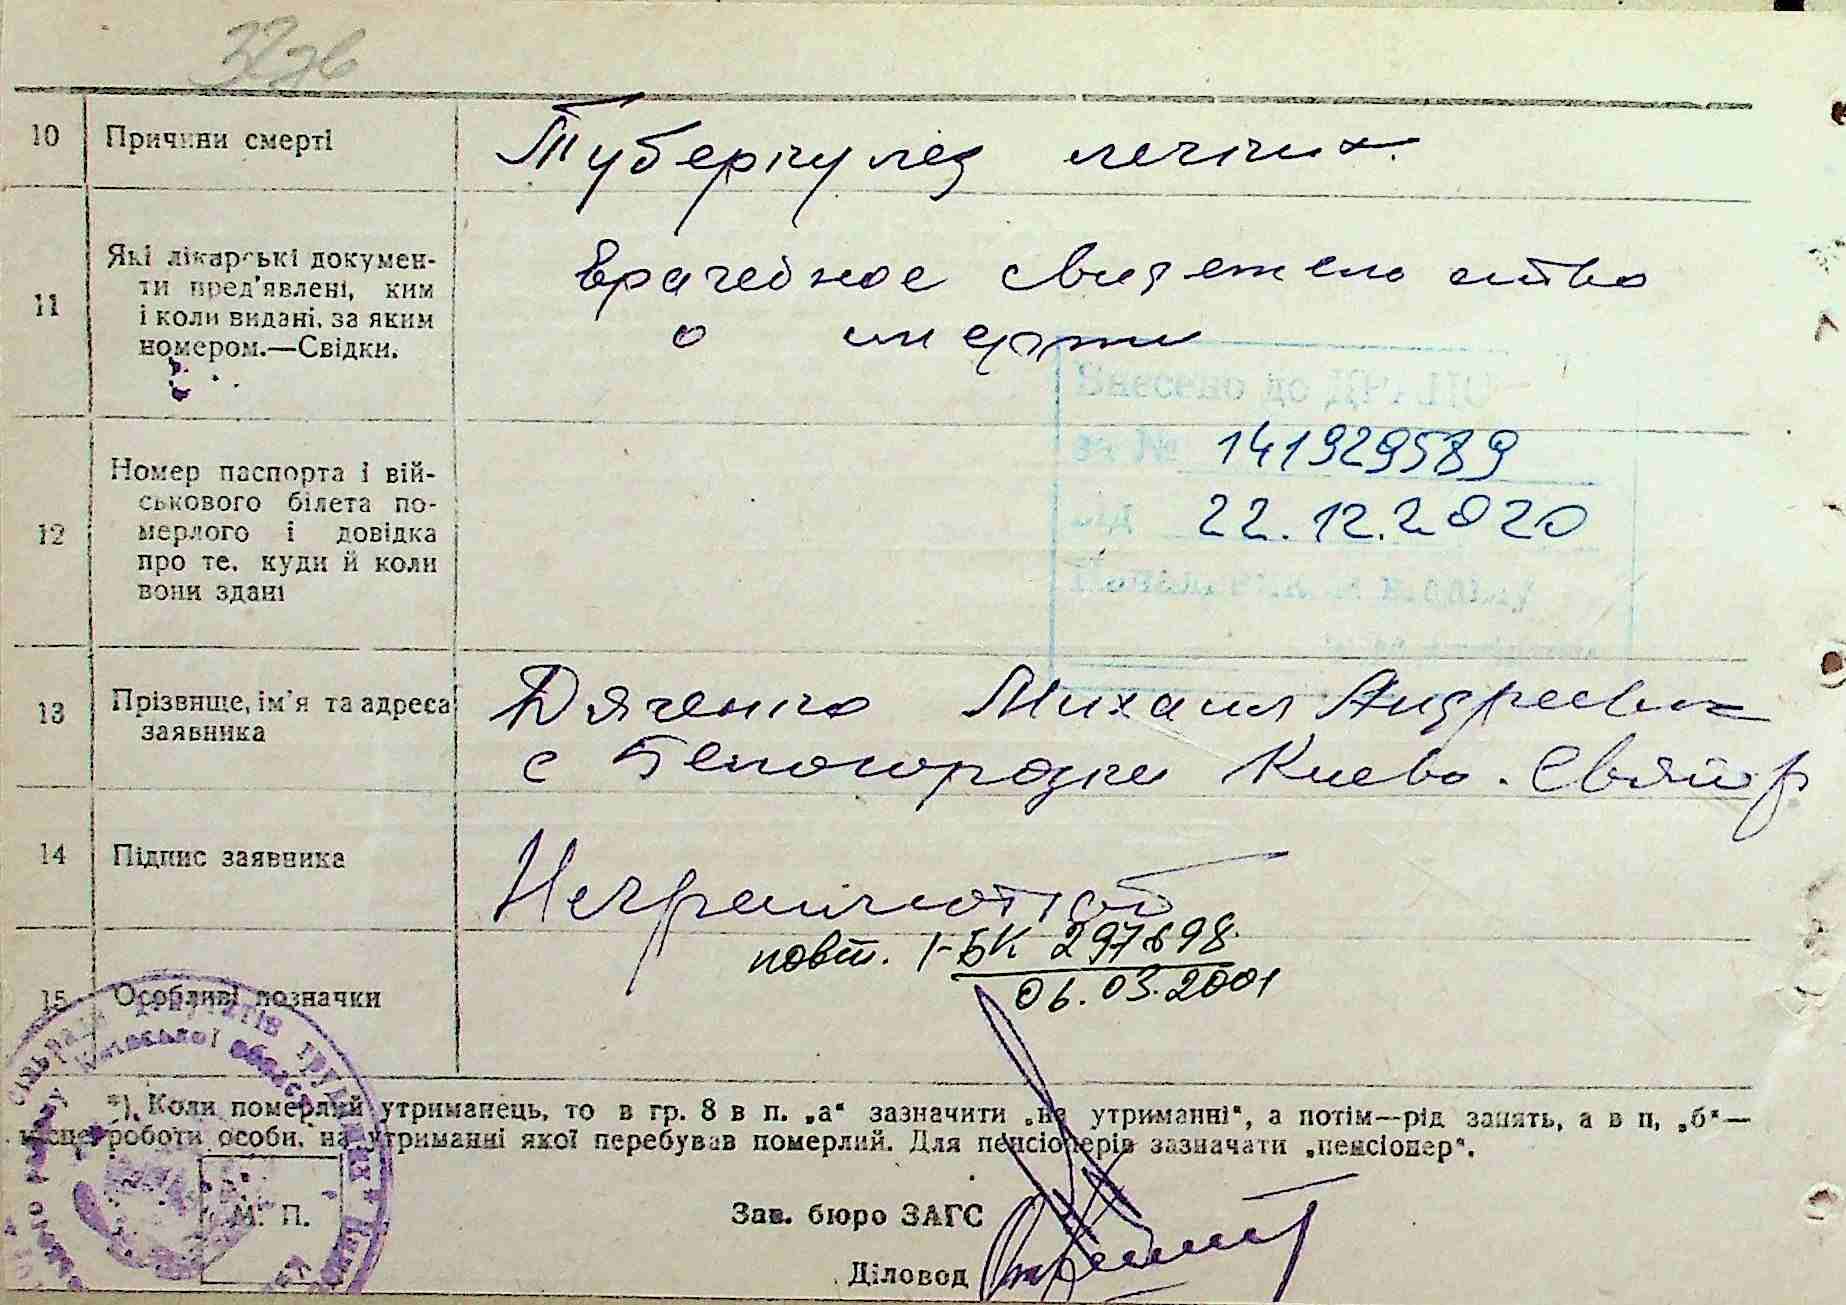 10 Причини смерті
Туберкулез легких.
11 Які лікарські докумен-
ти пред'явлені, ким
і коли видані, за яким
номером.—Свідки.
Врачебное свидетельство
о смерти
Внесено до ДРАЦС
за № 141929589
від 22.12.2020
12 Номер паспорта і вій-
ськового білета по-
мерлого і довідка
про те, куди й коли
вони здані
13 Прізвище, ім'я та адреса
заявника
Дяченко Михаил Андреевич
с Белогородки Киево. Свят р
14 Підпис заявника
Неграмотный
повт. І-БК 297698
06.03.2001
15 Особливі позначки
*). Коли померлий утриманець, то в гр. 8 в п. „а“ зазначити „на утриманні“, а потім—рід занять, а в п, „б“—
місце роботи особи, на утриманні якої перебував померлий. Для пенсіонерів зазначати „пенсіонер“.
М. П.
Зав. бюро ЗАГС
Діловод